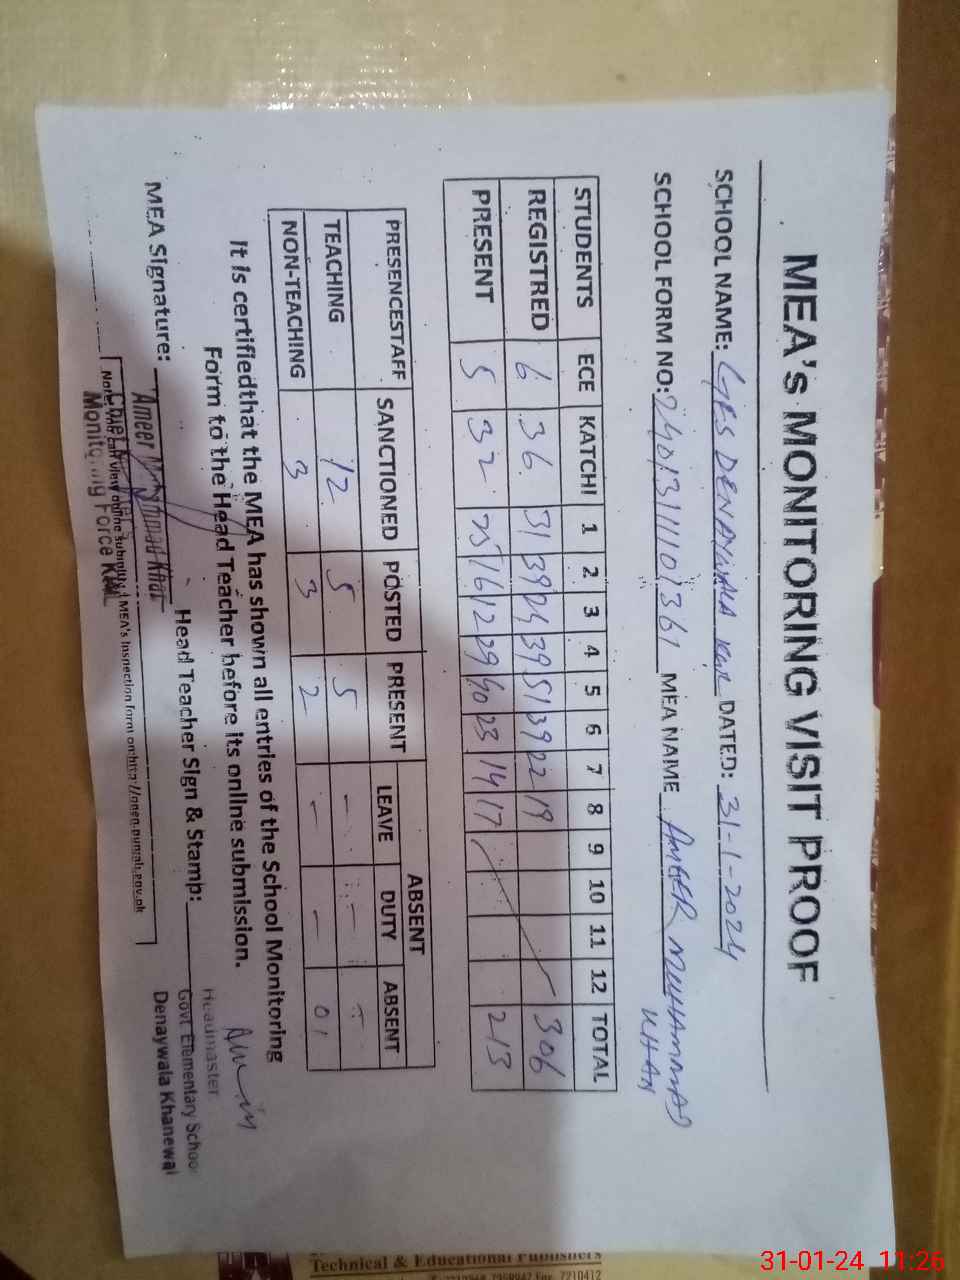 MEA's MONITORING VISIT PROOF
SCHOOL NAME: GES DENAYWALA KWL DATED: 31-1-2024
SCHOOL FORM NO: MEA NAME AMEER MUHAMMAD KHAN
STUDENTS ECE KATCHI 1 2 3 4 5 6 7 8 9 10 11 12 TOTAL
REGISTRED 6 36 31 39 24 39 51 39 22 19 306
PRESENT 5 32 25 16 12 29 40 23 14 17 213
PRESENCESTAFF SANCTIONED POSTED PRESENT ABSENT
LEAVE DUTY ABSENT
TEACHING 12 5 5 - - -
NON-TEACHING 3 3 2 - - 01
It is certifiedthat the MEA has shown all entries of the School Monitoring
Form to the Head Teacher before its online submission.
MEA Signature: Head Teacher Sign & Stamp:
Ameer Muhammad Khan
Monitoring Force KWL
Headmaster
Govt Elementary School
Denaywala Khanewal
Note: can view online submitted MEA's Inspection form on http://open.punjab.gov.pk
Technical & Educational Publishers
7210412
31-01-24 11:26